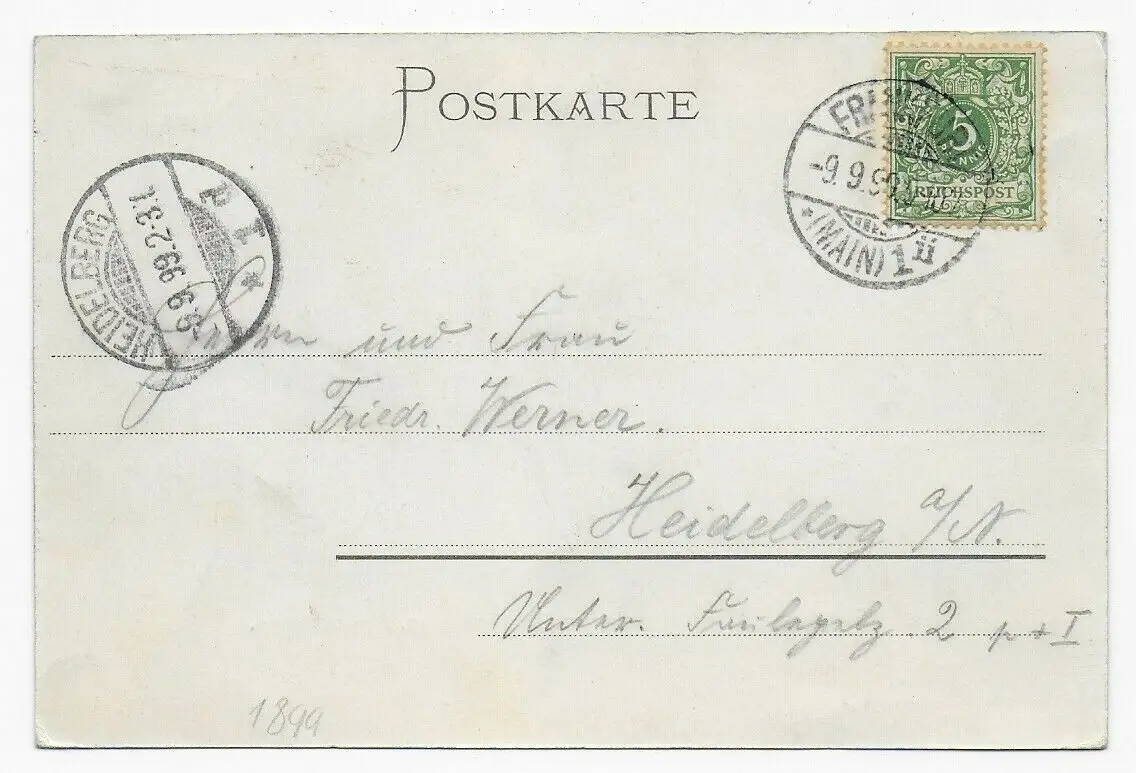 POSTKARTE
5
REICHSPOST
-9.9.99
*(MAIN) 1 ü
HEIDELBERG
9.9.99.2-3.
* 1
Herrn und Frau
Friedr. Werner.
Heidelberg a/N.
Unter. 2 p + I
1899